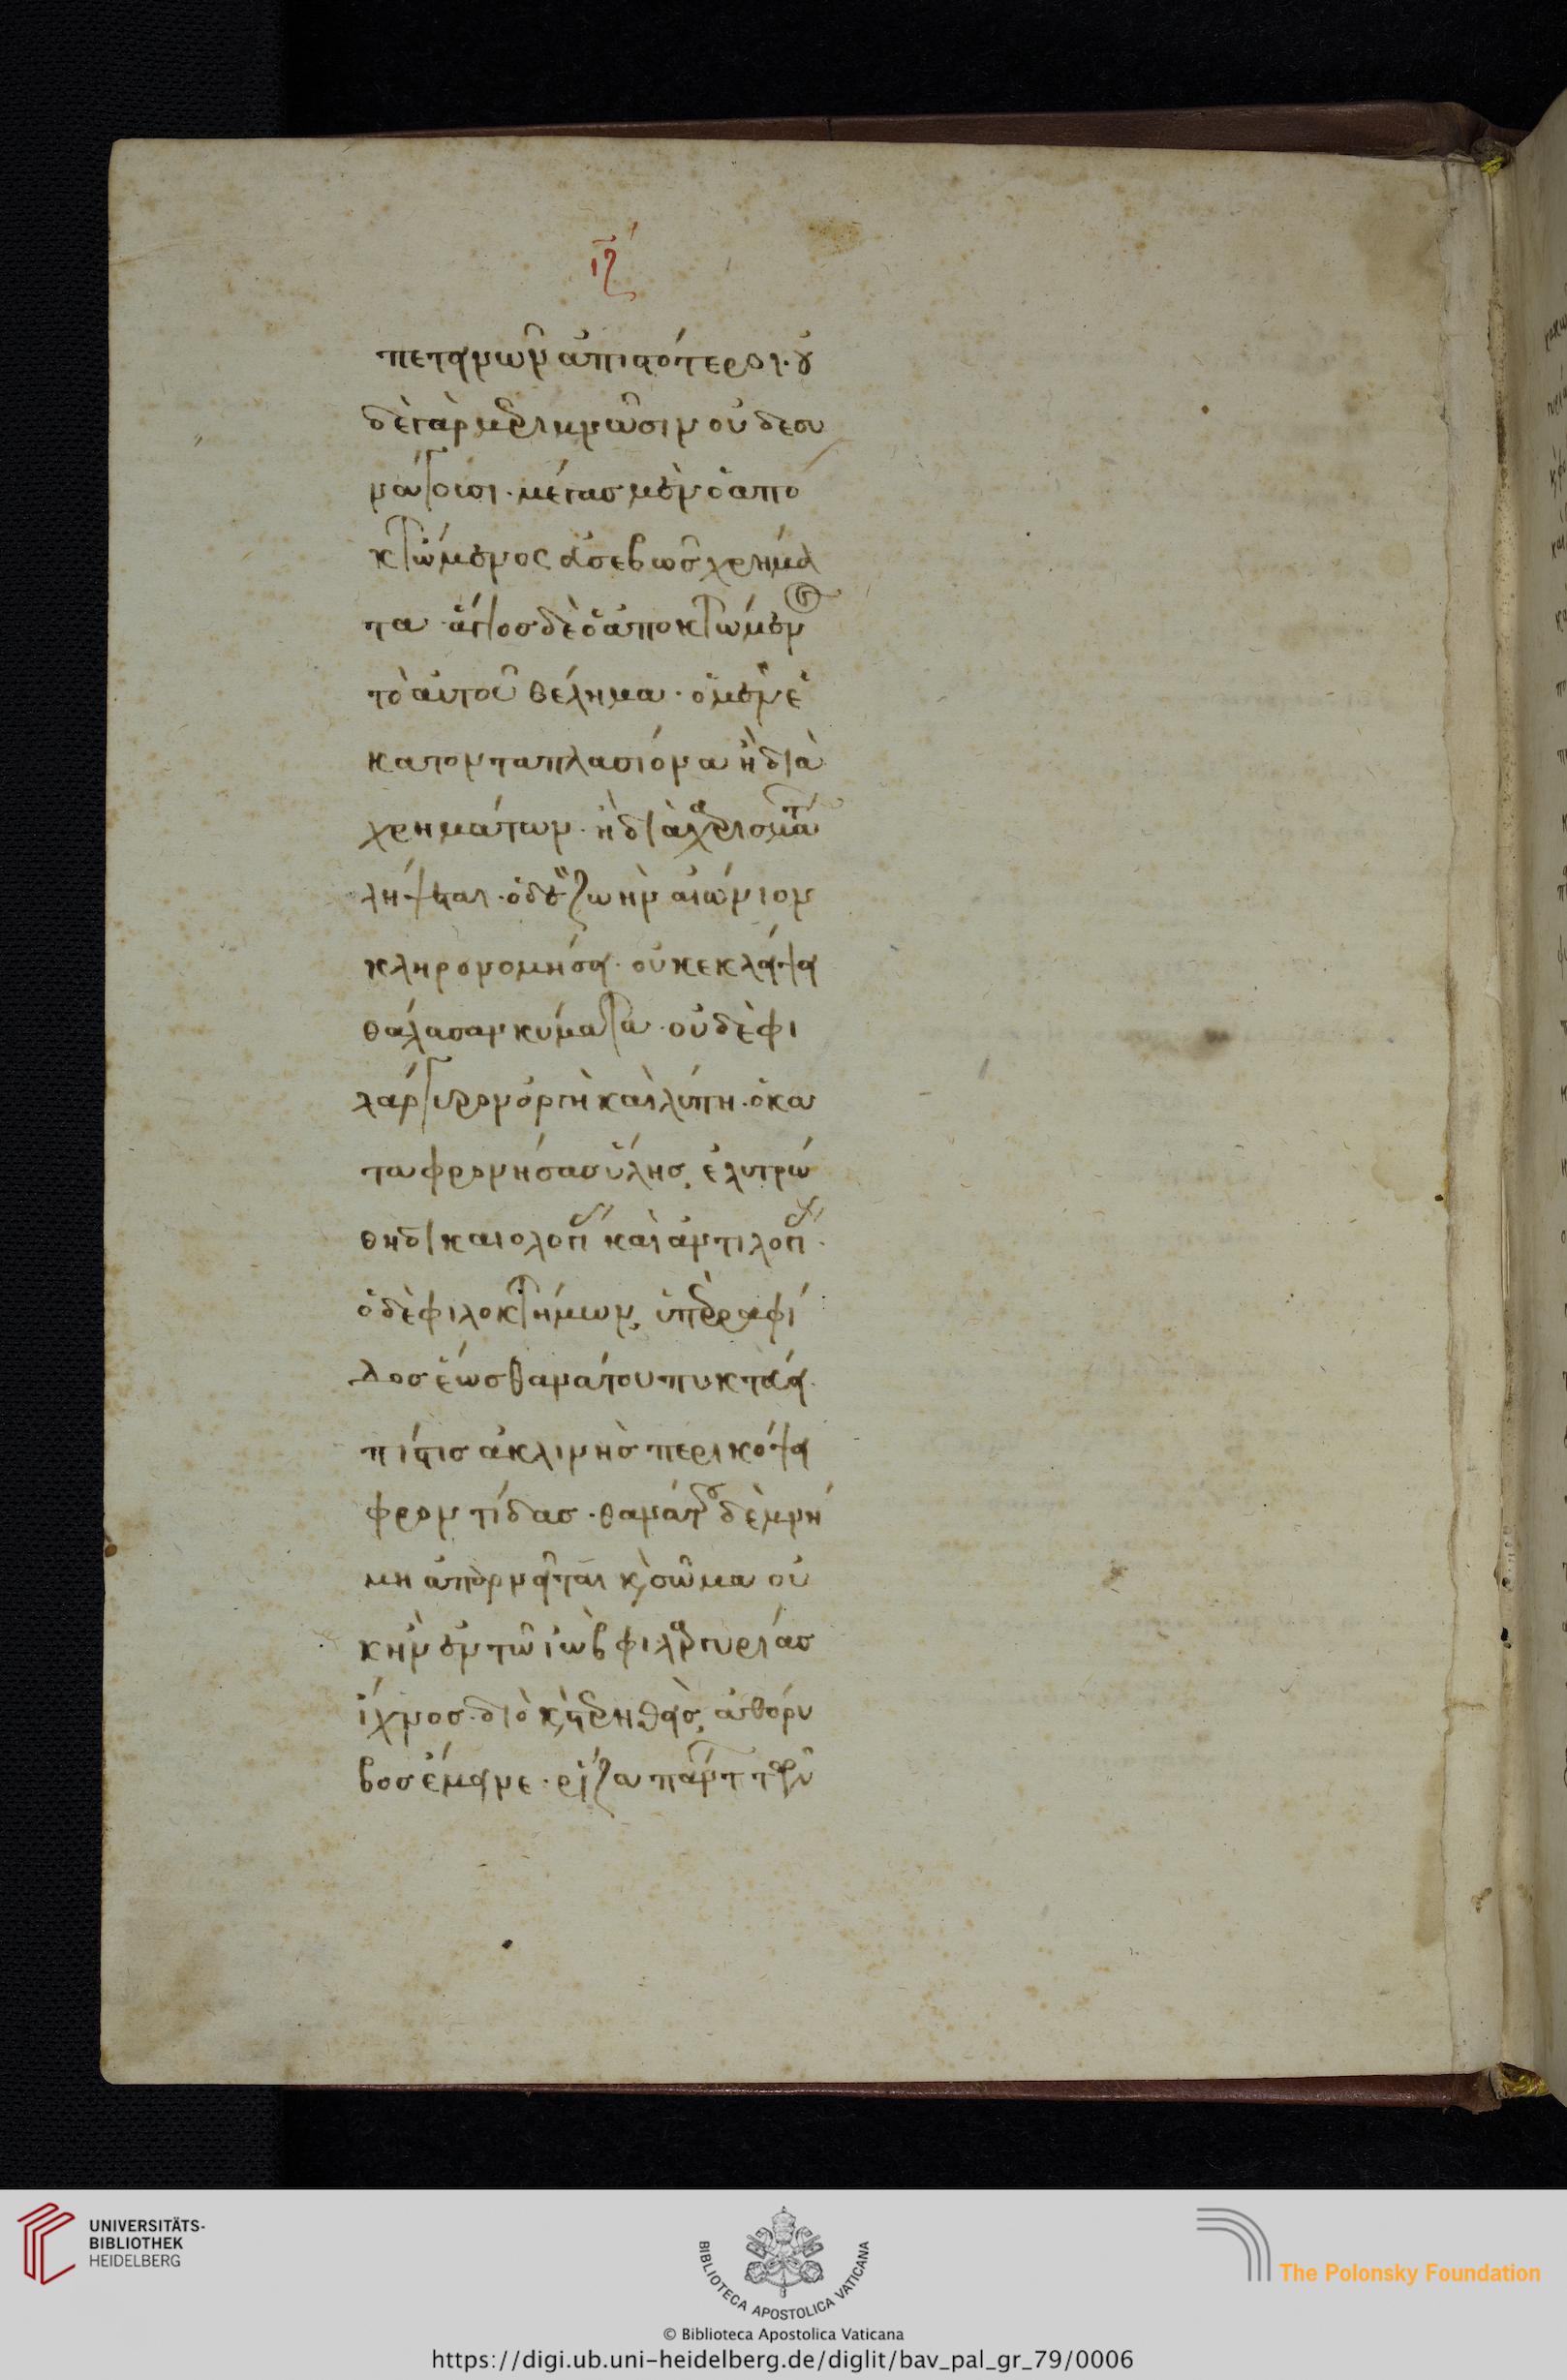 ιζ
πετεινῶν ἀπιστότεροι· οὐ
δὲ γὰρ μεριμνῶσιν οὐδὲ συ
νάγουσι· μέγας μὲν ὁ ἀπο
κτώμενος εὐσεβῶς χρήμα
τα· ἅγιος δὲ ὁ ἀποκτώμενος
τὸ αὐτοῦ θέλημα· ὁ μὲν ἑ
κατονταπλασίονα ἢ διὰ
χρημάτων· ἢ διὰ χαρισμάτων
λήψεται· ὁ δὲ ζωὴν αἰώνιον
κληρονομήσει· οὐκ ἐκλείψει
θάλασσαν κύματα· οὐδὲ φι
λάργυρον ὀργὴ καὶ λύπη· ὁ κα
ταφρονήσας ὕλης, ἐλυτρώ
θη δικαιολογιῶν καὶ ἀντιλογιῶν·
ὁ δὲ φιλοκτήμων, ὑπὲρ ραφί
δος ἕως θανάτου πυκτεύει·
πίστις ἀκλινὴς περικόψει
φροντίδας· θανάτου δὲ μνή
μη ἀπαρνεῖται καὶ σῶμα· οὐ
κ ἦν ἐν τῷ ἰὼβ φιλαργυρίας
ἴχνος· διὸ καὶ στερηθεὶς, ἀθόρυ
βος ἔμεινε· ῥίζα πάντων τῶν
UNIVERSITÄTS-
BIBLIOTHEK
HEIDELBERG
BIBLIOTECA APOSTOLICA VATICANA
The Polonsky Foundation
© Biblioteca Apostolica Vaticana
https://digi.ub.uni-heidelberg.de/diglit/bav_pal_gr_79/0006